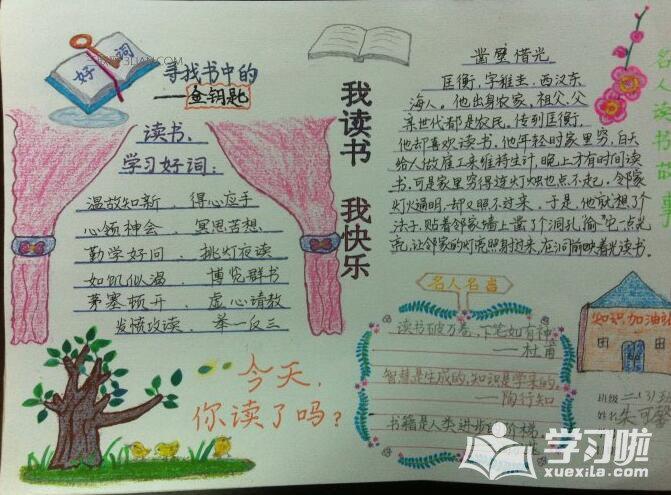 好词
寻找书中的
——金钥匙
读书、
学习好词：
温故知新、得心应手
心领神会、冥思苦想
勤学好问、挑灯夜读
如饥似渴、博览群书
茅塞顿开、虚心请教
发愤攻读、举一反三
今天，
你读了吗？
我读书 我快乐
凿壁借光
匡衡，字稚圭，西汉东
海人。他出身农家，祖父、父
亲世代都是农民。传到匡衡，
他却喜欢读书，他年轻时家里穷，白天
给人做雇工来维持生计，晚上才有时间读
书。可是家里穷得连灯烛也点不起。邻家
灯火通明，却又照不过来，于是，他就想个
法子，贴着邻家墙上凿了个洞孔“偷”它一点光
亮，让邻家的灯亮照射过来，在洞前映着光读书。
名人读书故事
名人名言
读书破万卷，下笔如有神
——杜甫
智慧是生成的，知识是学来的。
——陶行知
书籍是人类进步的阶梯。
知识加油站
班级
姓名
学习啦
xuexila.com